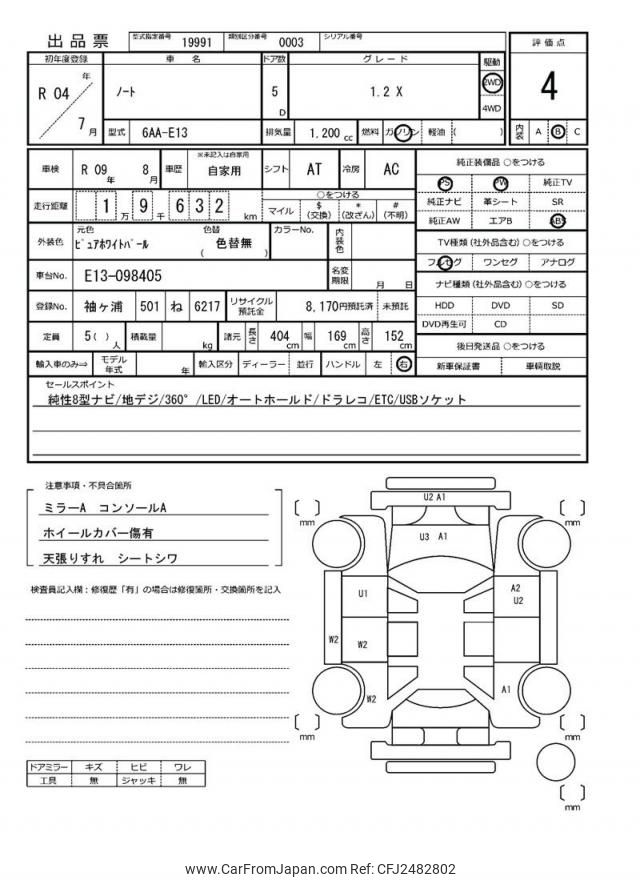 出品票 型式指定番号 19991 類別区分番号 0003 シリアル番号
初年度登録 車名 ドア数 グレード 駆動 評価点
R 04 年 7 月 ノート 5 D 1.2 X 2WD 4WD 4
型式 6AA-E13 排気量 1,200 cc 燃料 ガソリン 軽油 ( ) 内装 A B C
車検 R 09 年 8 月 車歴 ※未記入は自家用 自家用 シフト AT 冷房 AC
純正装備品 ○をつける
PS PW 純正TV
純正ナビ 革シート SR
純正AW エアB ABS
走行距離 1 万 9 千 6 3 2 km
○をつける
マイル $ (交換) * (改ざん) # (不明)
外装色 元色 ピュアホワイトパール 色替 ( 色替無 ) カラーNo. 内装色
TV種類 (社外品含む) ○をつける
フルセグ ワンセグ アナログ
車台No. E13-098405 名変期限 月 日
ナビ種類 (社外品含む) ○をつける
HDD DVD SD
DVD再生可 CD
登録No. 袖ヶ浦 501 ね 6217 リサイクル預託金 8,170円預託済 未預託
定員 5 ( ) 人 積載量 kg 諸元 長さ 404 cm 幅 169 cm 高さ 152 cm
後日発送品 ○をつける
新車保証書 車輌取説
輸入車のみ⇒ モデル年式 年 輸入区分 ディーラー 並行 ハンドル 左 右
セールスポイント
純性8型ナビ/地デジ/360°/LED/オートホールド/ドラレコ/ETC/USBソケット
注意事項・不具合箇所
ミラーA コンソールA
ホイールカバー傷有
天張りすれ シートシワ
検査員記入欄：修復歴「有」の場合は修復箇所・交換箇所を記入
U2 A1
mm mm
U3 A1
U1 A2
U2
W2 W2
W2 A1
mm mm
mm
ドアミラー キズ ヒビ ワレ
工具 無 ジャッキ 無
www.CarFromJapan.com Ref: CFJ2482802